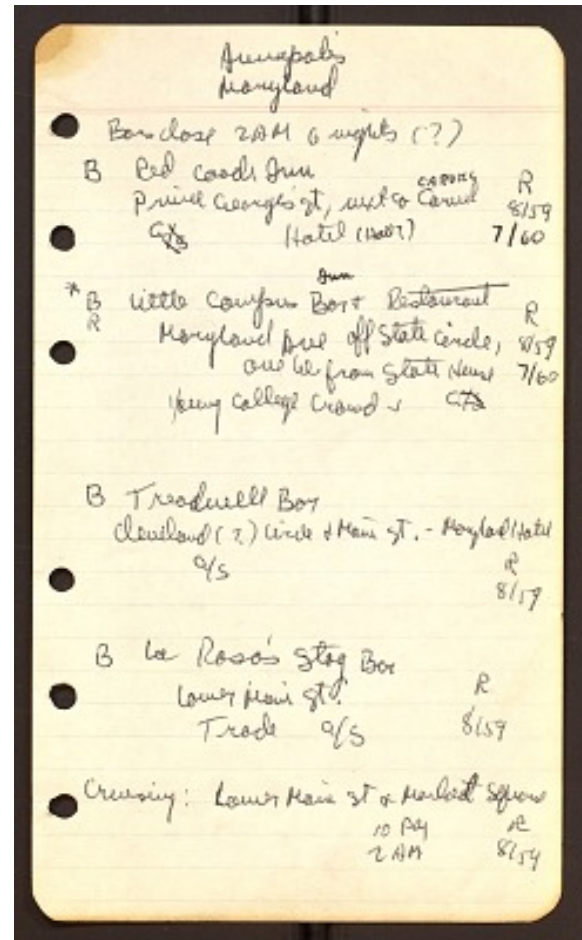 Annapolis
Maryland
Bars close 2AM 6 nights (?)
B Red Coach Inn
Prince Georges St, next to Carvel
Hotel (Hall?)
R
8/59
7/60
Inn
* B Little Campus Bar + Restaurant
R
Maryland Ave off State Circle,
one bl. from State House
Young College Crowd
R
8/59
7/60
B Treadwell Bar
Cleveland (?) Circle + Main St. - Maryland Hotel
a/s
R
8/59
B La Rosa's Stag Bar
Lower Main St.
Trade a/s
R
8/59
Cruising: Lower Main St + Market Square
10 PM
2 AM
R
8/59